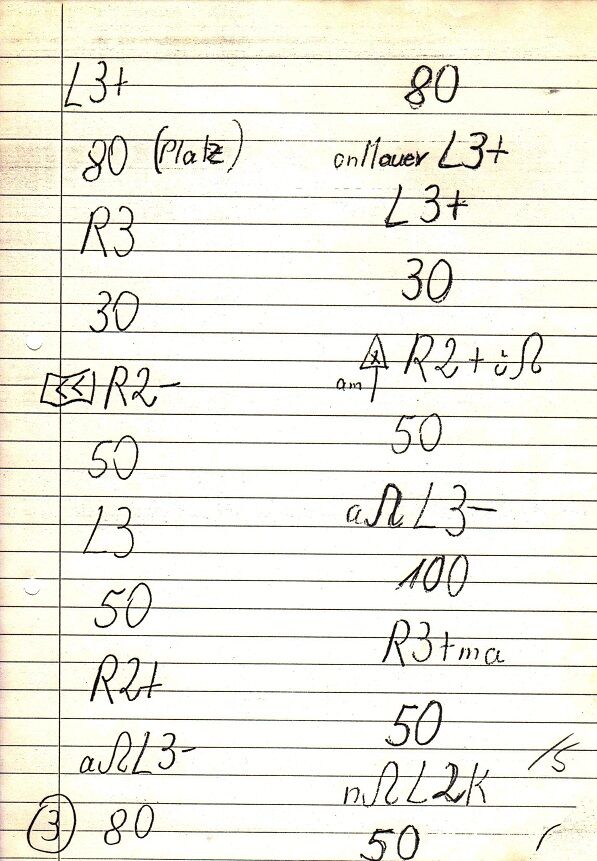 L3+
80 (Platz)
R3
30
<< R2-
50
L3
50
R2+
aΩL3-
③ 80
80
an Mauer L3+
L3+
30
am R2+üΩ
50
aΩL3-
100
R3+ma
50
nΩL2K
/5
50